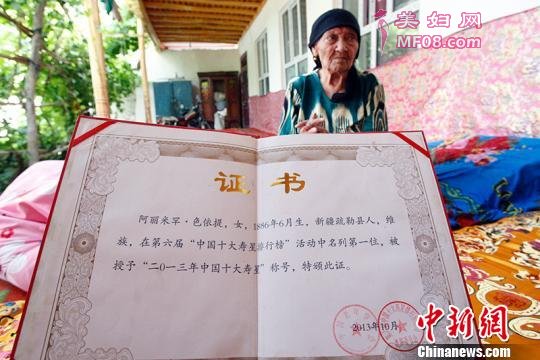 美妇网
MF08.com
证 书
阿丽米罕·色依提，女，1886年6月生，新疆疏勒县人，维
族，在第六届“中国十大寿星排行榜”活动中名列第一位，被
授予“二〇一三年中国十大寿星”称号，特颁此证。
2013年10月
中新网
Chinanews.com